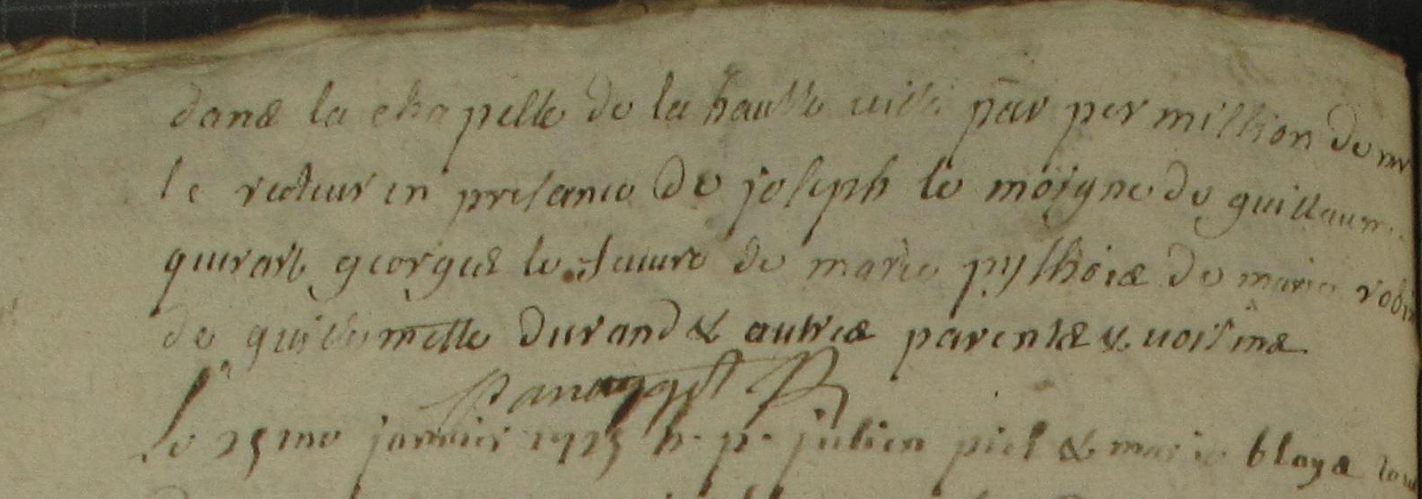 dans la chapelle de la haulte ville par permission de mr
le recteur en presance de joseph le moigne de guillaume
quirart georges le de marie de marie robin
de guillemette durand & autres parents & voisins
le 25me janvier 1725 h. p. julien piel & marie blays